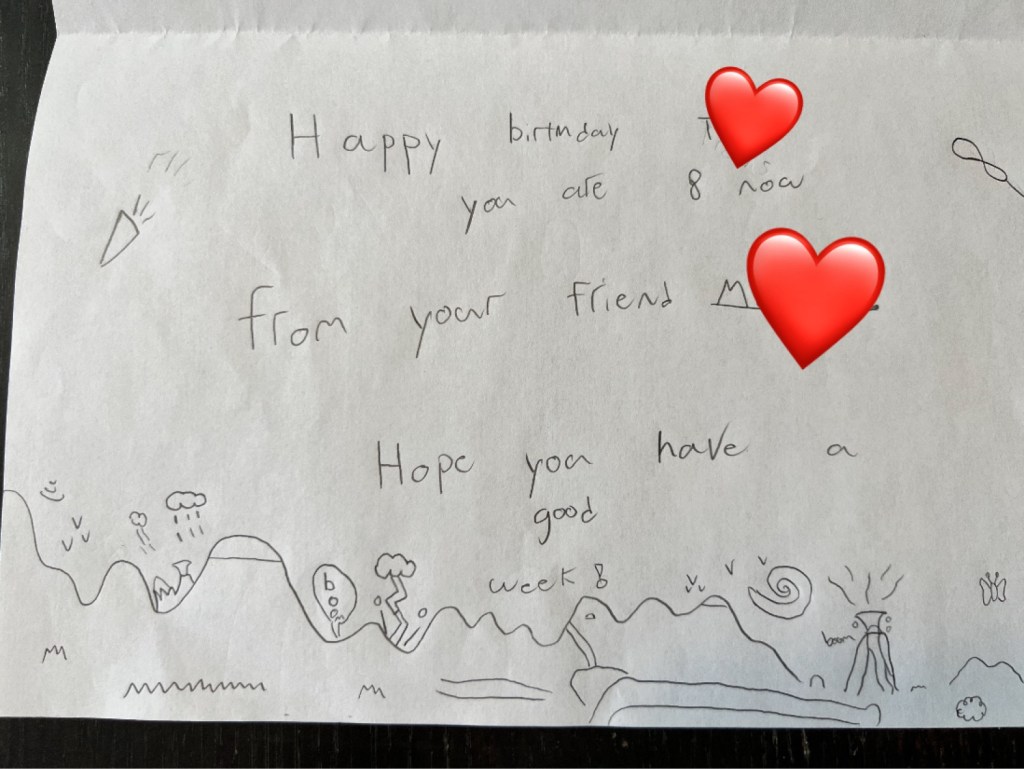 Happy birthday T
you are 8 now
from your friend M
Hope you have a
good
week 8
boo
boom